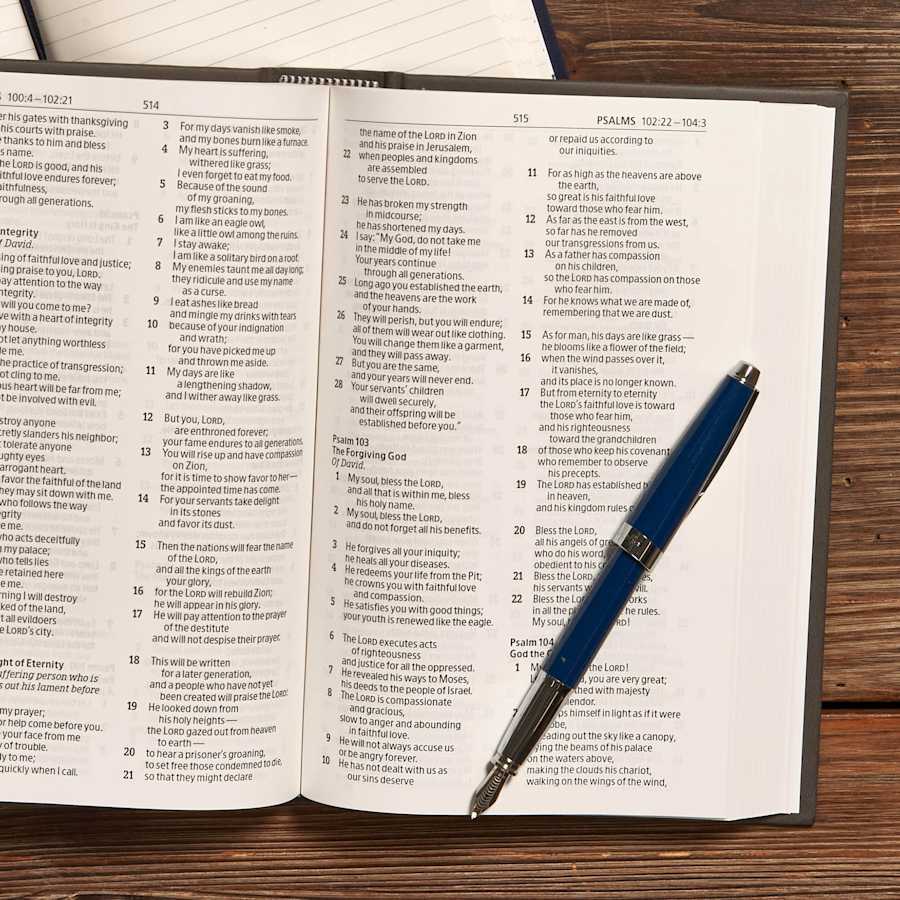 100:4–102:21
514
his gates with thanksgiving
his courts with praise.
thanks to him and bless
name.
the LORD is good, and his
faithful love endures forever;
faithfulness,
through all generations.
Integrity
Of David.
sing of faithful love and justice;
sing praise to you, LORD.
pay attention to the way
integrity.
will you come to me?
live with a heart of integrity
my house.
not let anything worthless
me.
the practice of transgression;
not cling to me.
heart will be far from me;
not be involved with evil.
destroy anyone
secretly slanders his neighbor;
tolerate anyone
haughty eyes
arrogant heart.
favor the faithful of the land
they may sit down with me.
who follows the way
integrity
me.
who acts deceitfully
my palace;
who tells lies
be retained here
me.
morning I will destroy
wicked of the land,
all evildoers
the LORD’s city.
of Eternity
suffering person who is
out his lament before
my prayer;
for help come before you.
your face from me
day of trouble.
to me;
quickly when I call.
3 For my days vanish like smoke,
and my bones burn like a furnace.
4 My heart is suffering,
withered like grass;
I even forget to eat my food.
5 Because of the sound
of my groaning,
my flesh sticks to my bones.
6 I am like an eagle owl,
like a little owl among the ruins.
7 I stay awake;
I am like a solitary bird on a roof.
8 My enemies taunt me all day long;
they ridicule and use my name
as a curse.
9 I eat ashes like bread
and mingle my drinks with tears
10 because of your indignation
and wrath;
for you have picked me up
and thrown me aside.
11 My days are like
a lengthening shadow,
and I wither away like grass.
12 But you, LORD,
are enthroned forever;
your fame endures to all generations.
13 You will rise up and have compassion
on Zion,
for it is time to show favor to her—
the appointed time has come.
14 For your servants take delight
in its stones
and favor its dust.
15 Then the nations will fear the name
of the LORD,
and all the kings of the earth
your glory,
16 for the LORD will rebuild Zion;
he will appear in his glory.
17 He will pay attention to the prayer
of the destitute
and will not despise their prayer.
18 This will be written
for a later generation,
and a people who have not yet
been created will praise the LORD:
19 He looked down from
his holy heights—
the LORD gazed out from heaven
to earth—
20 to hear a prisoner’s groaning,
to set free those condemned to die,
21 so that they might declare
515
PSALMS 102:22–104:3
the name of the LORD in Zion
and his praise in Jerusalem,
22 when peoples and kingdoms
are assembled
to serve the LORD.
23 He has broken my strength
in midcourse;
he has shortened my days.
24 I say: “My God, do not take me
in the middle of my life!
Your years continue
through all generations.
25 Long ago you established the earth,
and the heavens are the work
of your hands.
26 They will perish, but you will endure;
all of them will wear out like clothing.
You will change them like a garment,
and they will pass away.
27 But you are the same,
and your years will never end.
28 Your servants’ children
will dwell securely,
and their offspring will be
established before you.”
Psalm 103
The Forgiving God
Of David.
1 My soul, bless the LORD,
and all that is within me, bless
his holy name.
2 My soul, bless the LORD,
and do not forget all his benefits.
3 He forgives all your iniquity;
he heals all your diseases.
4 He redeems your life from the Pit;
he crowns you with faithful love
and compassion.
5 He satisfies you with good things;
your youth is renewed like the eagle.
6 The LORD executes acts
of righteousness
and justice for all the oppressed.
7 He revealed his ways to Moses,
his deeds to the people of Israel.
8 The LORD is compassionate
and gracious,
slow to anger and abounding
in faithful love.
9 He will not always accuse us
or be angry forever.
10 He has not dealt with us as
our sins deserve
or repaid us according to
our iniquities.
11 For as high as the heavens are above
the earth,
so great is his faithful love
toward those who fear him.
12 As far as the east is from the west,
so far has he removed
our transgressions from us.
13 As a father has compassion
on his children,
so the LORD has compassion on those
who fear him.
14 For he knows what we are made of,
remembering that we are dust.
15 As for man, his days are like grass—
he blooms like a flower of the field;
16 when the wind passes over it,
it vanishes,
and its place is no longer known.
17 But from eternity to eternity
the LORD’s faithful love is toward
those who fear him,
and his righteousness
toward the grandchildren
18 of those who keep his covenant,
who remember to observe
his precepts.
19 The LORD has established
in heaven,
and his kingdom rules
20 Bless the LORD,
all his angels of
who do his word,
obedient to his
21 Bless the LORD,
his servants
22 Bless the works
in all the he rules.
My soul,
Psalm 104
God the
1 the LORD!
you are very great;
with majesty
2 himself in light as if it were
robe,
spreading out the sky like a canopy,
laying the beams of his palace
on the waters above,
making the clouds his chariot,
walking on the wings of the wind,